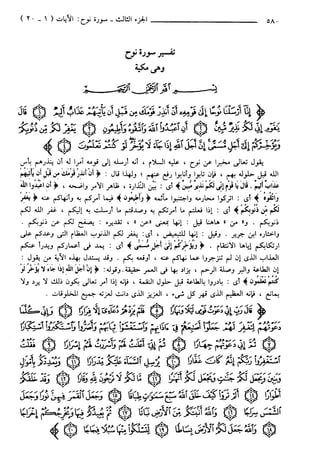 ٥٨٠ الجزء الثالث - سورة نوح: الآيات ( ١ - ٢٠ )
تفسير سورة نوح
وهى مكية
بسم الله الرحمن الرحيم
﴿ إِنَّا أَرْسَلْنَا نُوحًا إِلَى قَوْمِهِ أَنْ أَنذِرْ قَوْمَكَ مِن قَبْلِ أَن يَأْتِيَهُمْ عَذَابٌ أَلِيمٌ ۝ قَالَ
يَا قَوْمِ إِنِّي لَكُمْ نَذِيرٌ مُّبِينٌ ۝ أَنِ اعْبُدُوا اللَّهَ وَاتَّقُوهُ وَأَطِيعُونِ ۝ يَغْفِرْ لَكُم مِّن ذُنُوبِكُمْ
وَيُؤَخِّرْكُمْ إِلَى أَجَلٍ مُّسَمًّى إِنَّ أَجَلَ اللَّهِ إِذَا جَاءَ لَا يُؤَخَّرُ لَوْ كُنتُمْ تَعْلَمُونَ ۝ ﴾
يقول تعالى مخبرا عن نوح ، عليه السلام ، أنه أرسله إلى قومه آمرا له أن ينذرهم بأس
الله قبل حلوله بهم ، فإن تابوا وأنابوا رفع عنهم ؛ ولهذا قال : ﴿ أَنْ أَنذِرْ قَوْمَكَ مِن قَبْلِ أَن يَأْتِيَهُمْ
عَذَابٌ أَلِيمٌ . قَالَ يَا قَوْمِ إِنِّي لَكُمْ نَذِيرٌ مُّبِينٌ ﴾ أى : بَيّن النّذارة ، ظاهر الأمر واضحه ، ﴿ أَنِ اعْبُدُوا اللَّهَ
وَاتَّقُوهُ ﴾ أى : اتركوا محارمه واجتنبوا مآثمه ﴿ وَأَطِيعُونِ ﴾ فيما آمركم به وأنهاكم عنه ﴿ يَغْفِرْ
لَكُم مِّن ذُنُوبِكُمْ ﴾ أى : إذا فعلتم ما أمرتكم به وصدقتم ما أرسلت به إليكم ، غفر الله لكم
ذنوبكم . و« من » هاهنا قيل : إنها بمعنى «عن» ، تقديره : يصفح لكم عن ذنوبكم .
واختاره ابن جرير . وقيل : إنها للتبعيض ، أى : يغفر لكم الذنوب العظام التى وعدكم على
ارتكابكم إياها الانتقام . ﴿ وَيُؤَخِّرْكُمْ إِلَى أَجَلٍ مُّسَمًّى ﴾ أى : يمد فى أعماركم ويدرأ عنكم
العذاب الذى إن لم تنزجروا عما نهاكم عنه ، أوقعه بكم . وقد يستدل بهذه الآية من يقول :
إن الطاعة والبر وصلة الرحم ، يزاد بها فى العمر حقيقة. وقوله: ﴿ إِنَّ أَجَلَ اللَّهِ إِذَا جَاءَ لَا يُؤَخَّرُ لَوْ
كُنتُمْ تَعْلَمُونَ ﴾ أى : بادروا بالطاعة قبل حلول النقمة ، فإنه إذا أمر تعالى بكون ذلك لا يرد ولا
يمانع ، فإنه العظيم الذى قهر كل شىء ، العزيز الذى دانت لعزته جميع المخلوقات .
﴿ قَالَ رَبِّ إِنِّي دَعَوْتُ قَوْمِي لَيْلًا وَنَهَارًا ۝ فَلَمْ يَزِدْهُمْ دُعَائِي إِلَّا فِرَارًا ۝ وَإِنِّي كُلَّمَا
دَعَوْتُهُمْ لِتَغْفِرَ لَهُمْ جَعَلُوا أَصَابِعَهُمْ فِي آذَانِهِمْ وَاسْتَغْشَوْا ثِيَابَهُمْ وَأَصَرُّوا وَاسْتَكْبَرُوا اسْتِكْبَارًا
۝ ثُمَّ إِنِّي دَعَوْتُهُمْ جِهَارًا ۝ ثُمَّ إِنِّي أَعْلَنتُ لَهُمْ وَأَسْرَرْتُ لَهُمْ إِسْرَارًا ۝ فَقُلْتُ
اسْتَغْفِرُوا رَبَّكُمْ إِنَّهُ كَانَ غَفَّارًا ۝ يُرْسِلِ السَّمَاءَ عَلَيْكُم مِّدْرَارًا ۝ وَيُمْدِدْكُم بِأَمْوَالٍ
وَبَنِينَ وَيَجْعَل لَّكُمْ جَنَّاتٍ وَيَجْعَل لَّكُمْ أَنْهَارًا ۝ مَّا لَكُمْ لَا تَرْجُونَ لِلَّهِ وَقَارًا ۝ وَقَدْ خَلَقَكُمْ
أَطْوَارًا ۝ أَلَمْ تَرَوْا كَيْفَ خَلَقَ اللَّهُ سَبْعَ سَمَاوَاتٍ طِبَاقًا ۝ وَجَعَلَ الْقَمَرَ فِيهِنَّ نُورًا وَجَعَلَ
الشَّمْسَ سِرَاجًا ۝ وَاللَّهُ أَنبَتَكُم مِّنَ الْأَرْضِ نَبَاتًا ۝ ثُمَّ يُعِيدُكُمْ فِيهَا وَيُخْرِجُكُمْ إِخْرَاجًا
۝ وَاللَّهُ جَعَلَ لَكُمُ الْأَرْضَ بِسَاطًا ۝ لِّتَسْلُكُوا مِنْهَا سُبُلًا فِجَاجًا ۝ ﴾